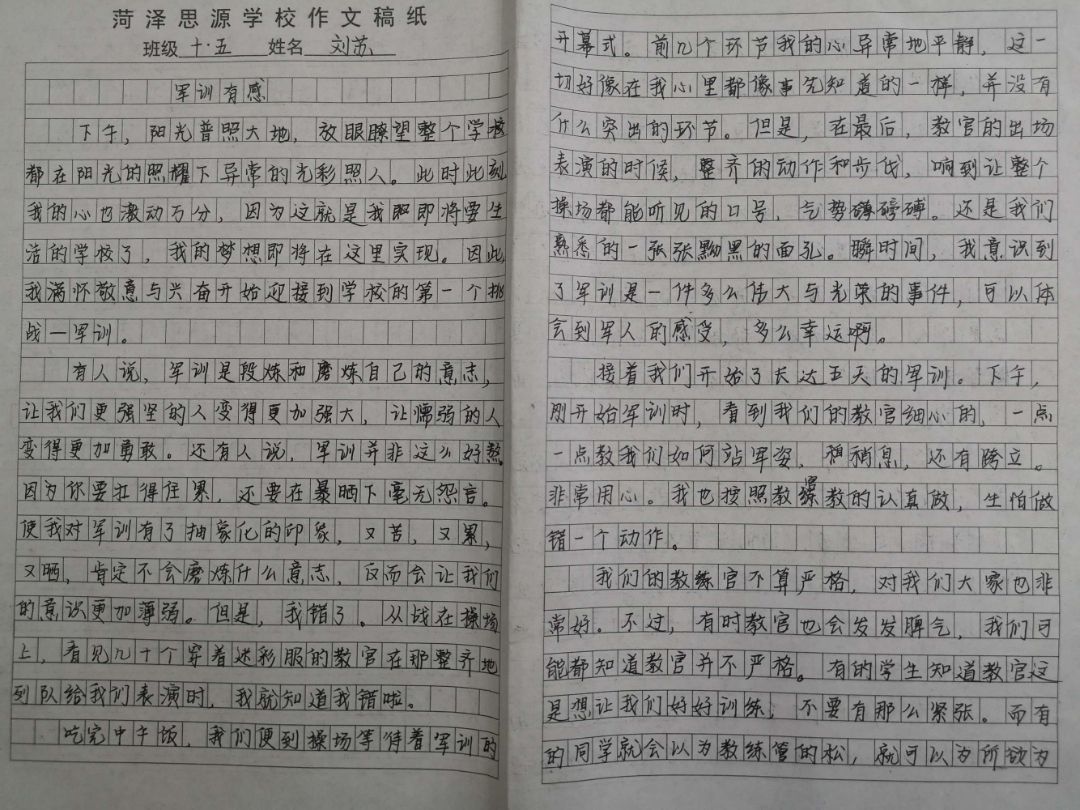 菏泽思源学校作文稿纸
班级 十·五 姓名 刘苏
军训有感
下午，阳光普照大地，放眼瞭望整个学校
都在阳光的照耀下异常的光彩照人。此时此刻
我的心也激动万分，因为这就是我即将要生
活的学校了，我的梦想即将在这里实现。因此，
我满怀敬意与兴奋开始迎接到学校的第一个挑
战—军训。
有人说，军训是段炼和磨炼自己的意志，
让我们更强坚的人变得更加强大，让懦弱的人
变得更加勇敢。还有人说，军训并非这么好熬
因为你要扛得住累，还要在暴晒下毫无怨言。
使我对军训有了抽象化的印象，又苦，又累，
又晒，肯定不会磨炼什么意志，反而会让我们
的意识更加薄弱。但是，我错了。从战在操场
上，看见几十个穿着迷彩服的教官在那整齐地
列队给我们表演时，我就知道我错啦。
吃完中午饭，我们便到操场等待着军训的
开幕式。前几个环节我的心异常地平静，这一
切好像在我心里都像事先知道的一样，并没有
什么突出的环节。但是，在最后，教官的出场
表演的时候，整齐的动作和步伐，响到让整个
操场都能听见的口号，气势磅礴。还是我们
熟悉的一张张黝黑的面孔。瞬时间，我意识到
了军训是一件多么伟大与光荣的事件，可以体
会到军人的感受，多么幸运啊。
接着我们开始了长达五天的军训。下午，
刚开始军训时，看到我们的教官细心的，一点
一点教我们如何站军姿，稍稍息，还有跨立。
非常用心。我也按照教练教的认真做，生怕做
错一个动作。
我们的教练官不算严格，对我们大家也非
常好。不过，有时教官也会发发脾气，我们可
能都知道教官并不严格。有的学生知道教官这
是想让我们好好训练，不要有那么紧张。而有
的同学就会以为教练管的松，就可以为所欲为